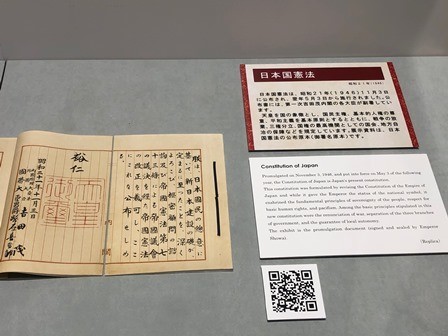 朕は、日本國民の總意に
基いて、新日本建設の礎が、
定まるに至つたことを、深く
よろこび、樞密顧問の諮詢
及び帝國憲法第七
十三條による帝國議會
の議決を経た帝國憲法
の改正を裁可し、ここに
これを公布せしめる。
裕仁
昭和二十一年十一月三日
吉田茂
日本国憲法
昭和21年(1946)
日本国憲法は、昭和21年(1946)11月3日
に公布され、翌年5月3日から施行されました。公
布書には、第一次吉田茂内閣の各大臣が副署してい
ます。
天皇を国の象徴とし、国民主権、基本的人権の尊
重、平和主義を基本原則とするとともに、戦争の放
棄、三権分立、国権の最高機関としての国会、地方自
治の保障などを規定しています。展示資料は、日本
国憲法の公布原本(御署名原本)です。
Constitution of Japan
Promulgated on November 3, 1946, and put into force on May 3 of the following
year, the Constitution of Japan is Japan's present constitution.
This constitution was formulated by revising the Constitution of the Empire of
Japan and while it gave the Emperor the status of the national symbol, it
enshrined the fundamental principles of sovereignty of the people, respect for
basic human rights, and pacifism. Among the basic principles stipulated in this
new constitution were the renunciation of war, separation of the three branches
of government, and the guarantee of local autonomy.
The exhibit is the promulgation document (signed and sealed by Emperor
Showa).
(Replica)